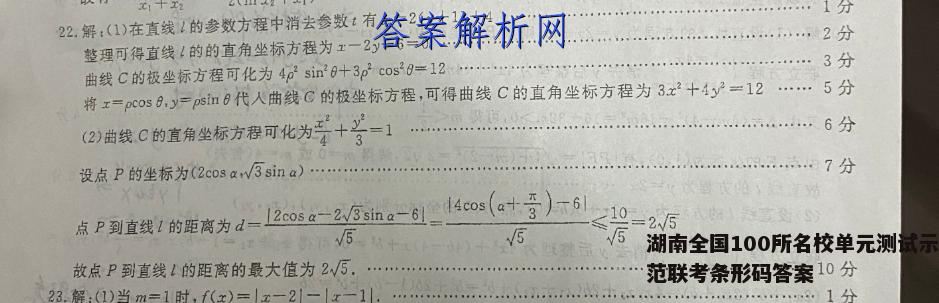 22.解:(1)在直线 l 的参数方程中消去参数 t 有
1分
答案解析网
整理可得直线 l 的的直角坐标方程为 x-2y-6=0 …… 2分
曲线 C 的极坐标方程可化为 4ρ² sin²θ+3ρ² cos²θ=12 …… 3分
将 x=ρcos θ,y=ρsin θ 代入曲线 C 的极坐标方程,可得曲线 C 的直角坐标方程为 3x²+4y²=12 …… 5分
(2)曲线 C 的直角坐标方程可化为 x²/4+y²/3=1 …… 6分
设点 P 的坐标为(2cos α,√3 sin α) …… 7分
点 P 到直线 l 的距离为 d=|2cos α-2√3 sin α-6|/√5=|4cos(α+π/3)-6|/√5≤10/√5=2√5
湖南全国100所名校单元测试示
范联考条形码答案
故点 P 到直线 l 的距离的最大值为 2√5. …… 10分
23.解:(1)当 m=1 时,f(x)=|x-2|-|x-1|. …… 1分